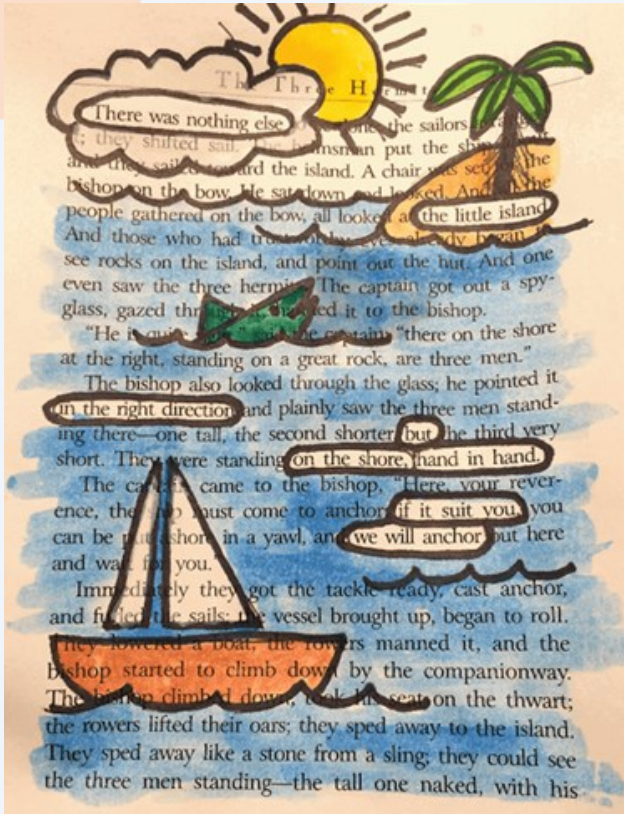 The Three Hermit
There was nothing else done, the sailors
they shifted sail. The helmsman put the ship
and they sailed toward the island. A chair was set the
bishop on the bow. He sat down and looked. And the
people gathered on the bow, all looked at the little island
And those who had trustworthy eyes already began
see rocks on the island, and point out the hut. And one
even saw the three hermits. The captain got out a spy-
glass, gazed through it, handed it to the bishop.
"He is quite the captain; "there on the shore
at the right, standing on a great rock, are three men."
The bishop also looked through the glass; he pointed it
in the right direction and plainly saw the three men stand-
ing there—one tall, the second shorter, but the third very
short. They were standing on the shore, hand in hand.
The captain came to the bishop, "Here, your rever-
ence, the ship must come to anchor; if it suit you, you
can be put ashore in a yawl, and we will anchor out here
and wait for you."
Immediately they got the tackle ready, cast anchor,
and furled the sails; the vessel brought up, began to roll.
They lowered a boat, the rowers manned it, and the
bishop started to climb down by the companionway.
The bishop climbed down, took his seat on the thwart;
the rowers lifted their oars; they sped away to the island.
They sped away like a stone from a sling; they could see
the three men standing—the tall one naked, with his